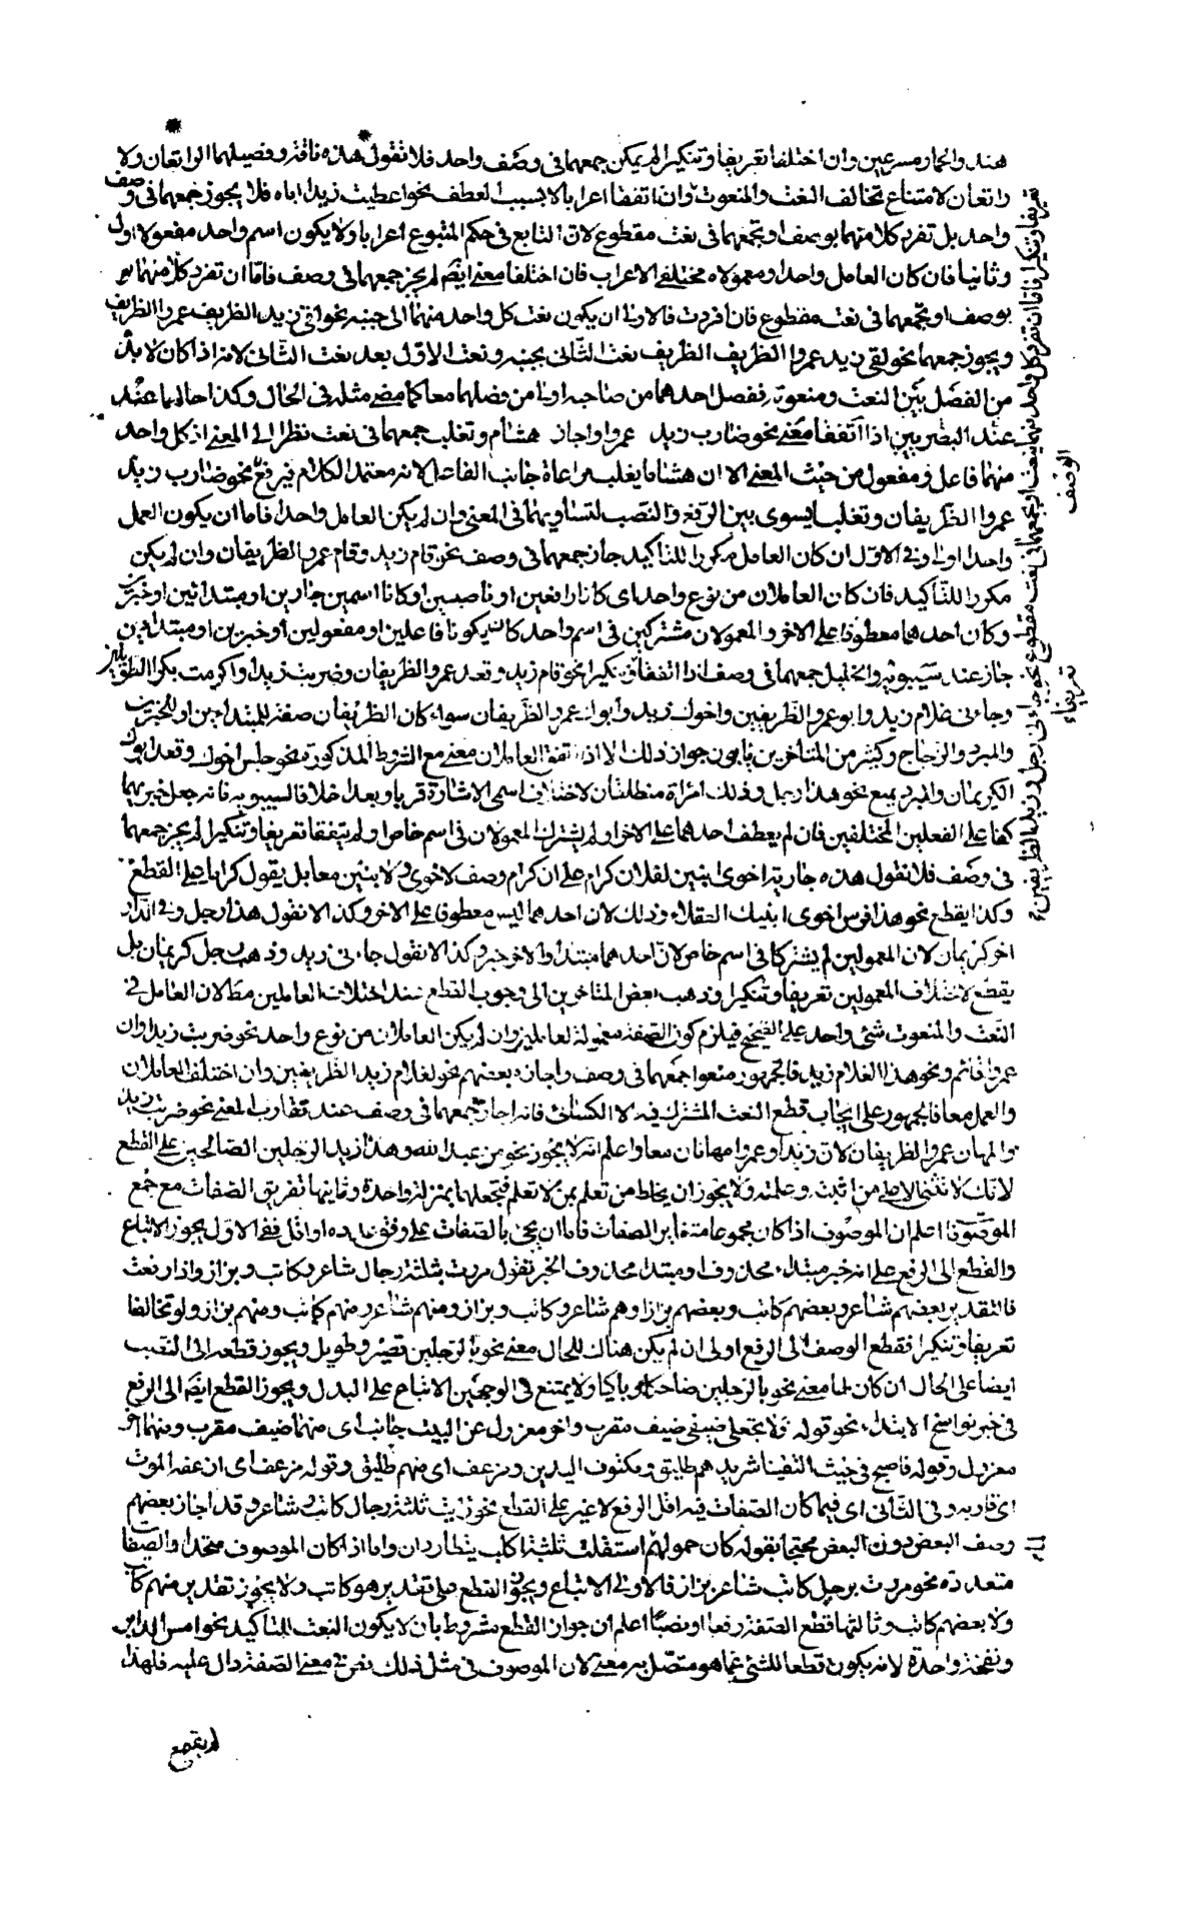 هند والحمار مسرعين وان اختلفا تعريفا وتنكيرا لم يمكن جمعهما فى وصف واحد فلا تقول هذه ناقة وفصيلها الراتعان ولا
راتعان لامتناع تخالف النعت والمنعوت وان اتفقا اعرابا لا بسبب العطف نحو اعطيت زيدا اباه فلا يجوز جمعهما فى وصف
واحد بل تفرد كلا منهما بوصف او تجمعهما فى نعت مقطوع لان التابع فى حكم المتبوع اعرابا ولا يكون اسم واحد مفعولا اول
وثانيا فان كان العامل واحدا ومعمولاه مختلفى الاعراب فان اختلفا معنى ايضا لم يجز جمعهما فى وصف فاما ان تفرد كلا منهما
بوصف او تجمعهما فى نعت مقطوع فان افردت فالاولى ان يكون نعت كل واحد منهما الى جنبه نحو لقى زيد الظريف عمروا الظريف
ويجوز جمعهما نحو لقى زيد عمروا الظريف الظريف نعت الثانى بجنبه ونعت الاول بعد نعت الثانى لانه اذا كان لا بد
من الفصل بين النعت ومنعوته ففصل احدهما من صاحبه اولى من فصلهما معا كما مضى مثله فى الحال وكذا حالهما عند
عند البصريين اذا اتفقا معنى نحو ضارب زيد عمروا واجاز هشام وثعلب جمعهما فى نعت نظرا الى المعنى اذ كل واحد
منهما فاعل ومفعول من حيث المعنى الا ان هشاما يغلب مراعاة جانب الفاعل لانه معتمد الكلام فيرفع نحو ضارب زيد
عمروا الظريفان وثعلب يسوى بين الرفع والنصب لتساويهما فى المعنى وان لم يكن العامل واحدا فاما ان يكون العمل
واحدا او لا وفى الاول ان كان العامل مكررا للتاكيد جاز جمعهما فى وصف نحو قام زيد وقام عمرو الظريفان وان لم يكن
مكررا للتأكيد فان كان العاملان من نوع واحد اى كانا رافعين او ناصبين او كانا اسمين جارين او مبتدائين او خبرين
وكان احدهما معطوفا على الاخر والمعمولان مشتركين فى اسم واحد كان يكونا فاعلين او مفعولين او خبرين او مبتدأين
جاز عند سيبويه والخليل جمعهما فى وصف اذا اتفقا تنكيرا نحو قام زيد وقعد عمرو الظريفان وضربت زيدا واكرمت بكرا الظريفين
وجاءنى غلام زيد وابو عمرو الظريفين واخوك زيد وابوك عمرو الظريفان سواء كان الظريفان صفة للمبتداءين او للخبرين
والمبرد والزجاج وكثير من المتاخرين يأبون جواز ذلك الا اذا اتفق العاملان معنى مع الشروط المذكورة نحو جلس اخوك وقعد ابوك
الكريمان والمبرد يمنع نحو هذا رجل وذلك امراة منطلقان لاختلاف اسمى الاشارة قربا وبعدا خلافا لسيبويه فانه جعل خبريهما
كفاعلى الفعلين المختلفين فان لم يعطف احدهما على الاخر او لم يشترك المعمولان فى اسم خاص او لم يتفقا تعريفا وتنكيرا لم يجز جمعهما
فى وصف فلا تقول هذه جارية اخوى ابنين لفلان كرام على ان كرام وصف لاخوى ولابنين معا بل يقول كراما على القطع
وكذا يقطع نحو هذا فرس اخوى ابنيك العقلاء وذلك لان احدهما ليس معطوفا على الاخر وكذا لا تقول هذا رجل وفى الدار
اخر كريمان لان المعمولين لم يشتركا فى اسم خاص لان احدهما مبتدأ والاخر خبر وكذا لا تقول جاءنى زيد وذهب رجل كريمان بل
يقطع لاختلاف المعمولين تعريفا وتنكيرا وذهب بعض المتاخرين الى وجوب القطع عند اختلاف العاملين مطا لان العامل فى
النعت والمنعوت شئ واحد على الصحيح فيلزم كون الصفة معمولة لعاملين وان لم يكن العاملان من نوع واحد نحو ضربت زيدا وان
عمروا قائم ونحو هذا الغلام زيد فالجمهور منعوا جمعهما فى وصف واجازه بعضهم نحو لغلام زيد الظريفين وان اختلف العاملان
والعمل معا فالجمهور على ايجاب قطع النعت المشترك فيه لا الكسائى فانه اجاز جمعهما فى وصف عند تقارب المعنى نحو ضربت زيدا
والمهان عمرو الظريفان لان زيدا وعمروا مهانان معا واعلم انه لا يجوز نحو من عبد الله وهذا زيد الرجلين الصالحين على القطع
لانك لا تثنى الا على من اثبته وعلمته ولا يجوز ان يخلط من تعلم بمن لا تعلم فتجعلهما بمنزلة واحدة وثانيها تفريق الصفات مع جمع
الموصوف اعلم ان الموصوف اذا كان مجموعا متغاير الصفات فاما ان يجئ بالصفات على وفق عدده او اقل ففى الاول يجوز الاتباع
والقطع الى الرفع على انه خبر مبتداء محذوف او مبتدا محذوف الخبر تقول مررت بثلثة رجال شاعر وكاتب وبزاز واذا رفعت
فالتقدير بعضهم شاعر وبعضهم كاتب وبعضهم بزاز او هم شاعر وكاتب وبزاز ومنهم شاعر ومنهم كاتب ومنهم بزاز ولو تخالفا
تعريفا وتنكيرا فقطع الوصف الى الرفع اولى ان لم يكن هناك للحال معنى نحو بالرجلين قصير وطويل ويجوز قطعه الى النصب
ايضا على الحال ان كان لها معنى نحو بالرجلين ضاحكا وباكيا ولا يمتنع فى الوجهين الاتباع على البدل ويجوز القطع ايضا الى الرفع
فى خبر نواسخ الابتداء نحو قوله فلا تجعلى ضيفى ضيف مقرب واخر معزول عن البيت جانب اى منهما ضيف مقرب ومنهما اخر
معزول وقوله فاصبح فى حيث التقينا شريدهم طليق ومكتوف اليدين ومزعف اى منهم طليق وقوله مزعف اى ازعفه الموت
اى قاربه وفى الثانى اى فيما كان الصفات فيه اقل الرفع لا غير على القطع نحو رايت ثلثة رجال كاتب وشاعر وقد اجاز بعضهم
وصف البعض دون البعض محتجا بقوله كان حمولهم استقلت ثلثة اكلب يتطاردان واما اذا كان الموصوف متحدا والصفات
متعددة نحو مررت برجل كاتب شاعر بزاز فالاولى الاتباع ويجوز القطع على تقدير هو كاتب ولا يجوز تقدير منهم كاتب
ولا بعضهم كاتب وثالثها قطع الصفة رفعا او نصبا اعلم ان جواز القطع مشروط بان لا يكون النعت للتأكيد نحو امس الدابر
ونفخة واحدة لانه يكون قطعا للشئ عما هو متصل به معنى لان الموصوف فى مثل ذلك نص فى معنى الصفة دال عليه فلهذا
لم يقطع
تعريفا وتنكيرا فاما ان تفرد كل واحد منهما بنعت او تجمعهما فى نعت مقطوع نحو جاءنى رجل وزيد الظريفين
الوصف
تعريفاء